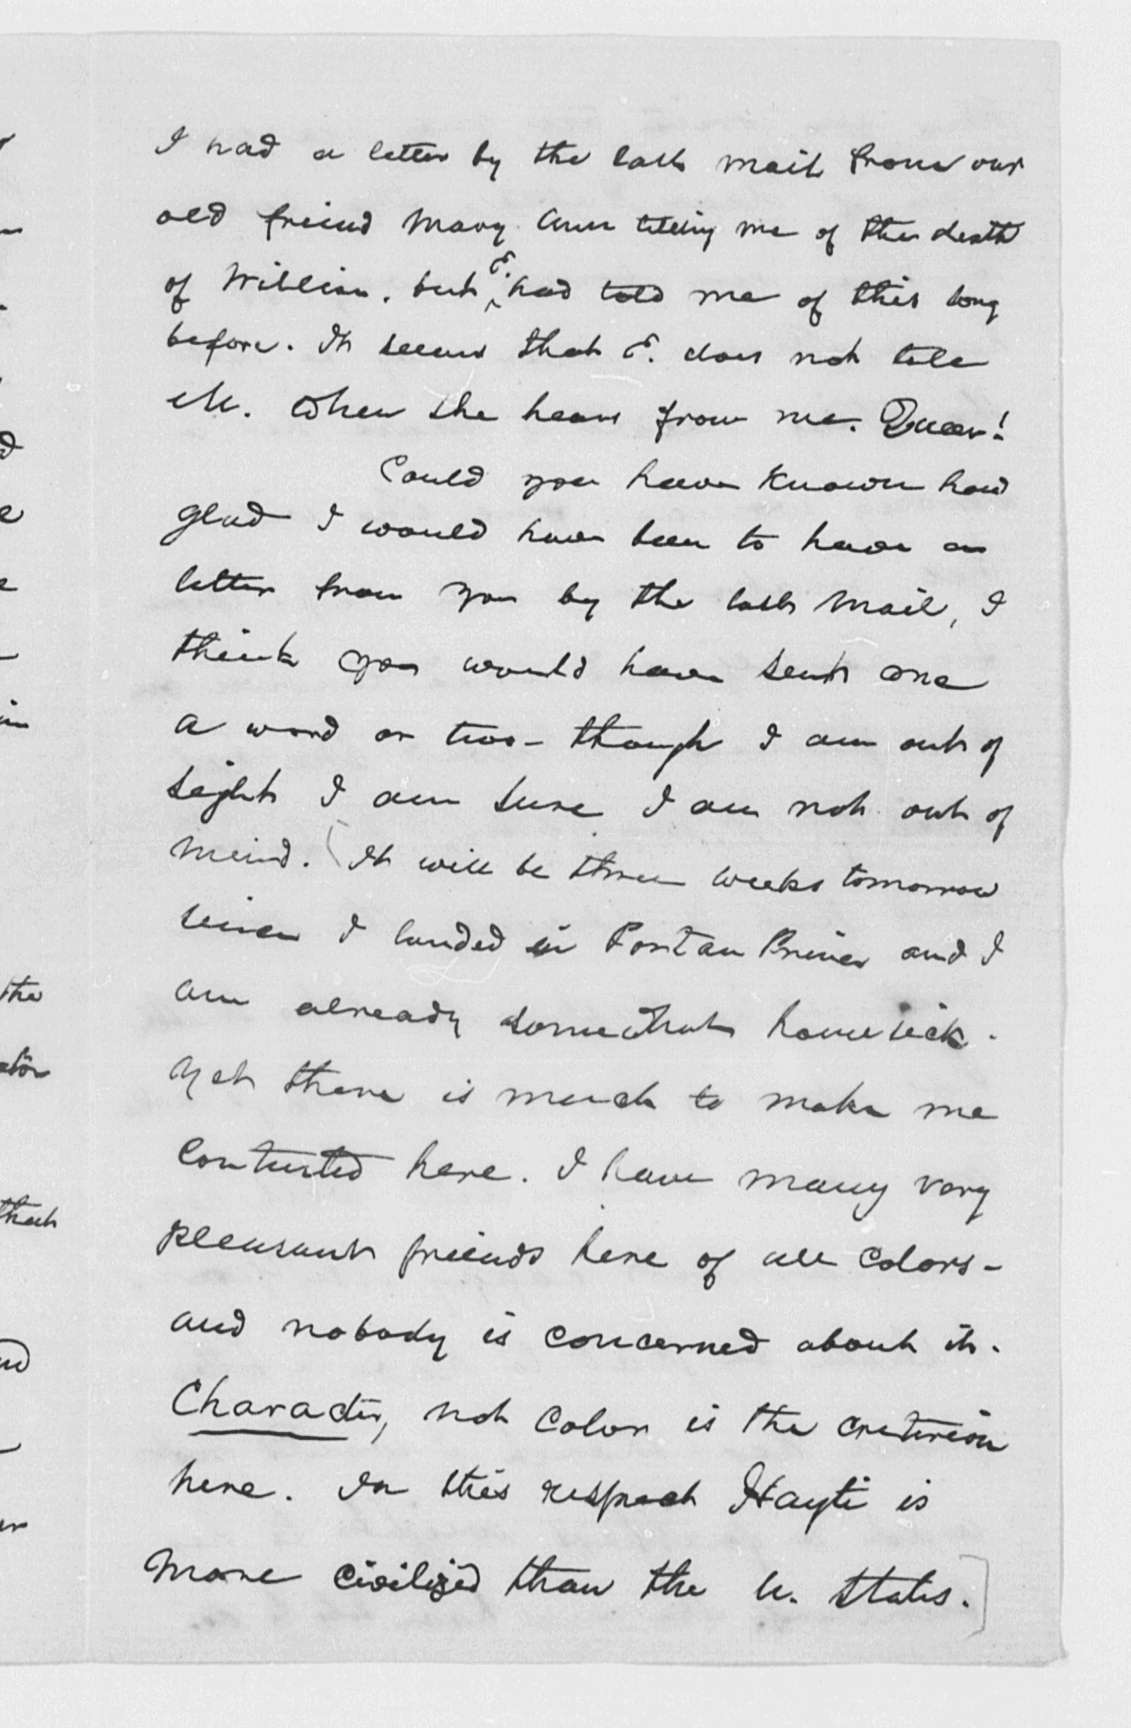 I had a letter by the last mail from our
old friend Mary Ann telling me of the death
of William. but E. had told me of this long
before. It seems that E. does not tell
M. when she hears from me. Queer!
Could you have known how
glad I would have been to have a
letter from you by the last mail, I
think you would have sent me
a word or two - though I am out of
sight I am sure I am not out of
mind. [It will be three weeks tomorrow
since I landed in Port au Prince and I
am already somewhat homesick.
Yet there is much to make me
contented here. I have many very
pleasant friends here of all colors -
and nobody is concerned about it.
Character, not color is the criterion
here. In this respect Hayti is
more civilized than the U. States.]
the
that